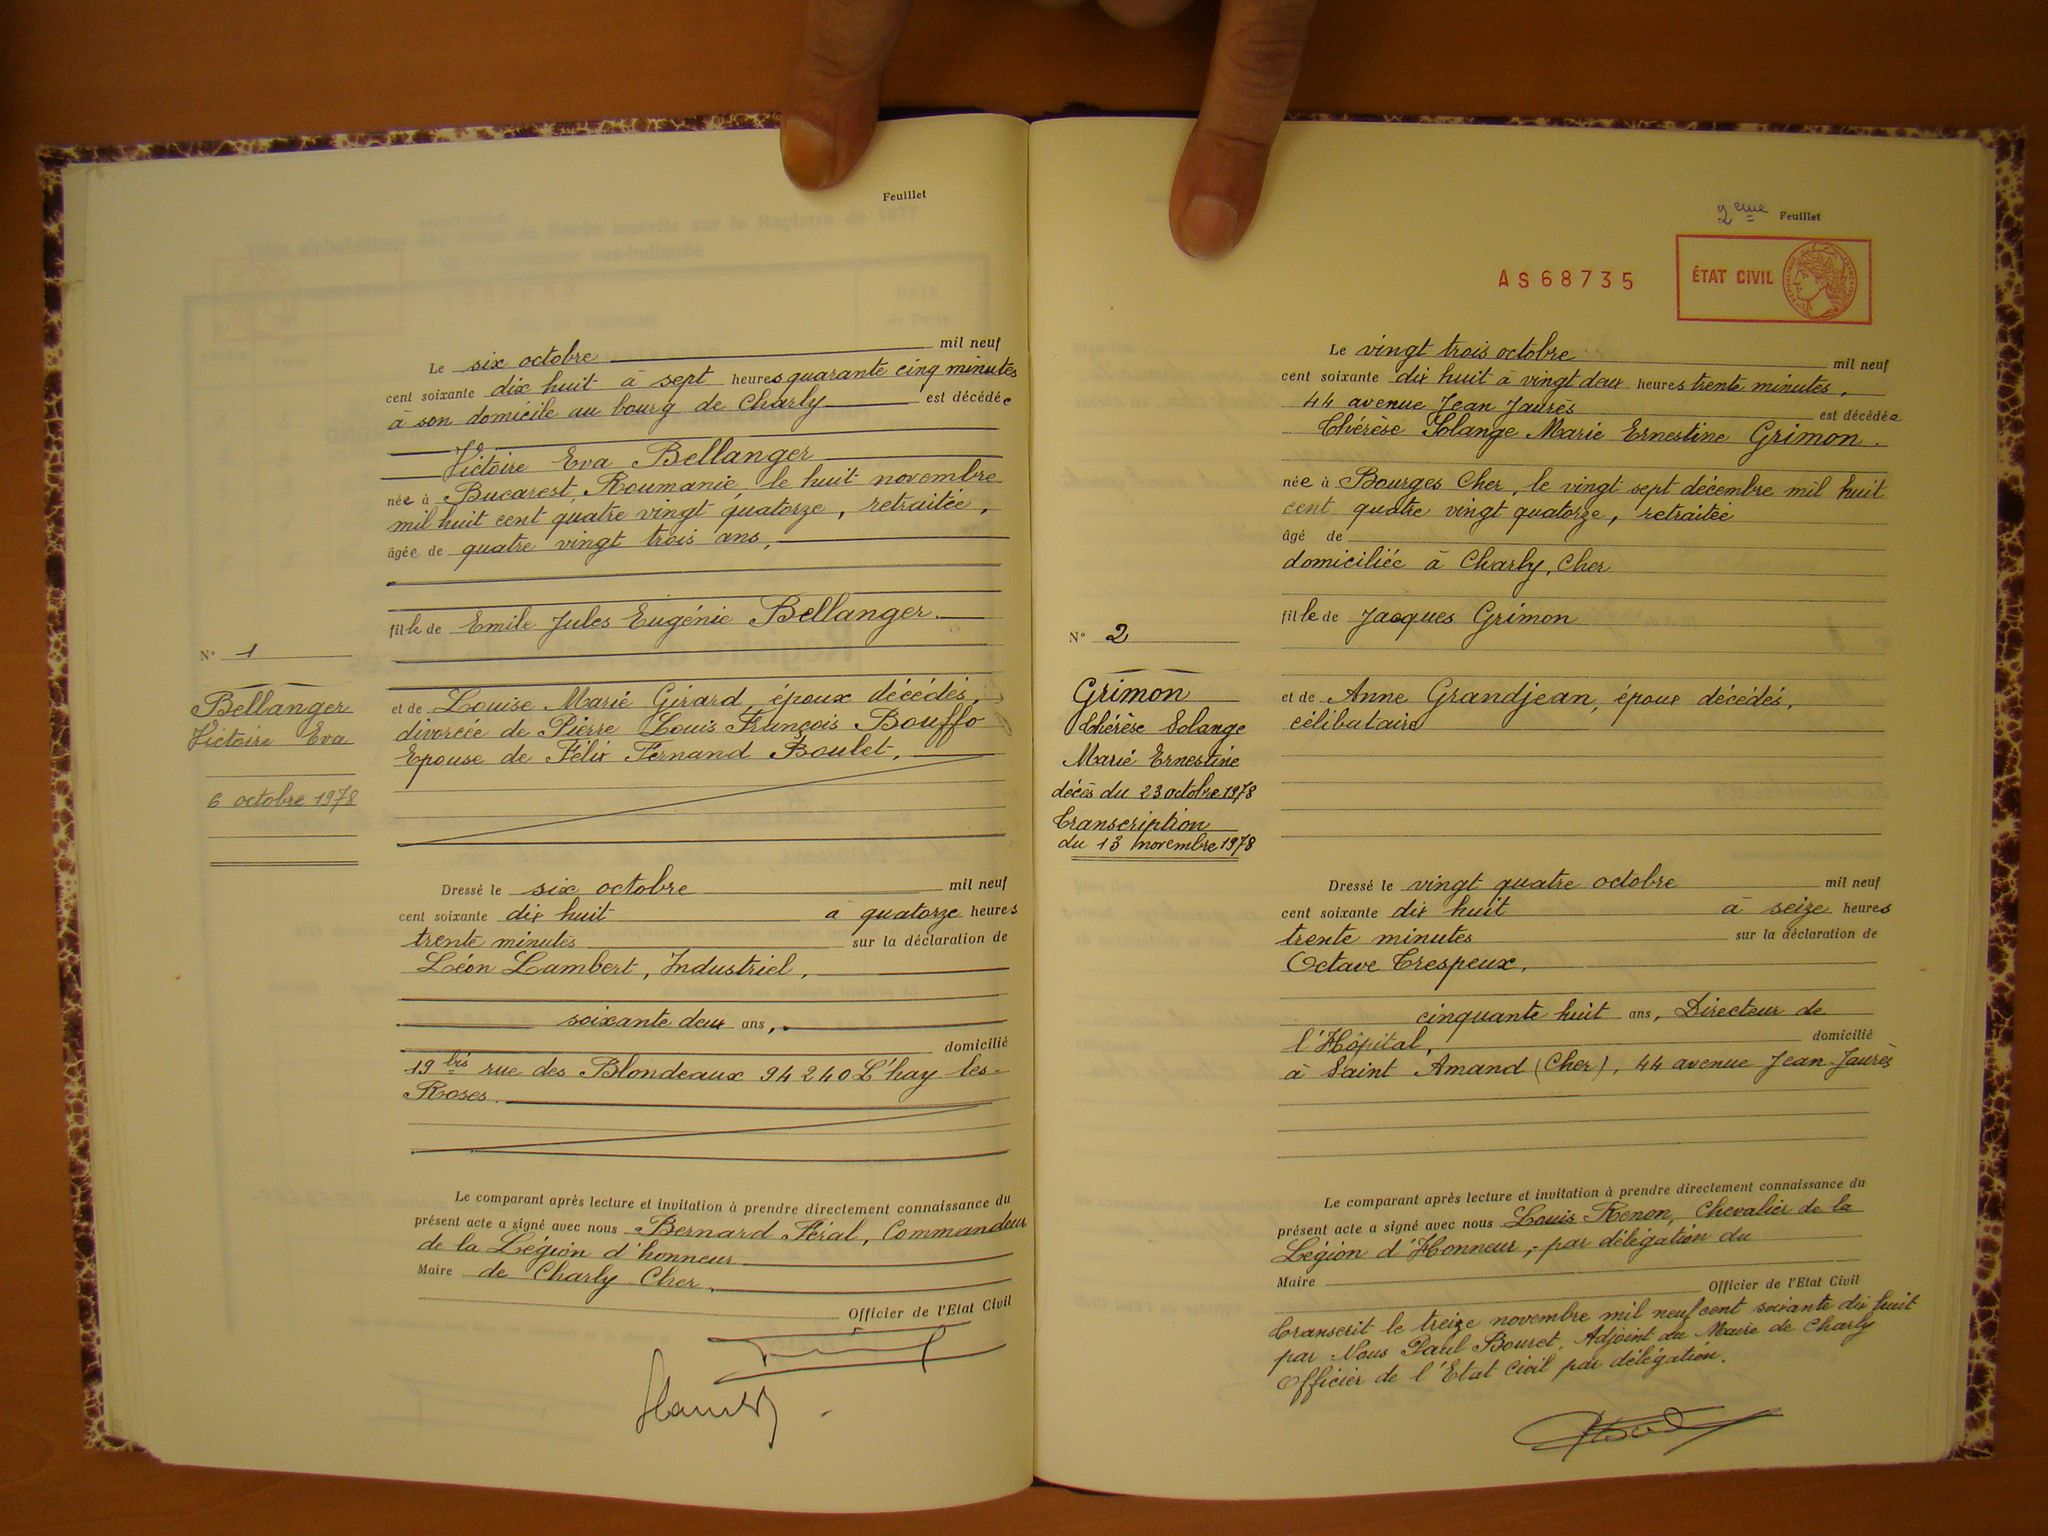 Feuillet
Le six octobre mil neuf
cent soixante dix huit à sept heures quarante cinq minutes
à son domicile au bourg de Charly est décédée
Victoire Eva Bellanger
née à Bucarest, Roumanie, le huit novembre
mil huit cent quatre vingt quatorze, retraitée,
âgée de quatre vingt trois ans,
fille de Emile Jules Eugénie Bellanger.
N° 1
Bellanger
Victoire Eva
6 octobre 1978
et de Louise Marie Girard, époux décédés,
divorcée de Pierre Louis François Bouffo
Epouse de Félix Fernand Boulet,
Dressé le six octobre mil neuf
cent soixante dix huit à quatorze heures
trente minutes sur la déclaration de
Léon Lambert, Industriel,
soixante deux ans,
domicilié
19 bis rue des Blondeaux 94240 L'hay les-
Roses.
Le comparant après lecture et invitation à prendre directement connaissance du
présent acte a signé avec nous Bernard Féral, Commandeur
de la Légion d'honneur
Maire de Charly Cher.
Officier de l'Etat Civil
2eme Feuillet
AS68735
ÉTAT CIVIL
Le vingt trois octobre mil neuf
cent soixante dix huit à vingt deux heures trente minutes,
44 avenue Jean Jaurès est décédée
Thérèse Solange Marie Ernestine Grimon
née à Bourges Cher, le vingt sept décembre mil huit
cent quatre vingt quatorze, retraitée
âgé de
domiciliée à Charly, Cher
fille de Jacques Grimon
N° 2
Grimon
Thérèse Solange
Marie Ernestine
décès du 23 octobre 1978
Transcription
du 13 novembre 1978
et de Anne Grandjean, époux décédés,
célibataire
Dressé le vingt quatre octobre mil neuf
cent soixante dix huit à seize heures
trente minutes sur la déclaration de
Octave Trespeux,
cinquante huit ans, Directeur de
l'Hôpital, domicilié
à Saint Amand (Cher), 44 avenue Jean Jaurès
Le comparant après lecture et invitation à prendre directement connaissance du
présent acte a signé avec nous Louis Renon, Chevalier de la
Légion d'Honneur, par délégation du
Maire
Officier de l'Etat Civil
Transcrit le treize novembre mil neuf cent soixante dix huit
par Nous Paul Bouret, Adjoint au Maire de Charly
Officier de l'Etat Civil par délégation.